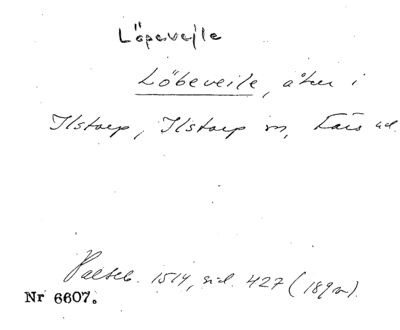 Löpevejle
Löbeveile, åker i
Ilstorp, Ilstorp sn, Färs hd.
Palteb. 1514, sid. 427 (189 v).
Nr 6607.